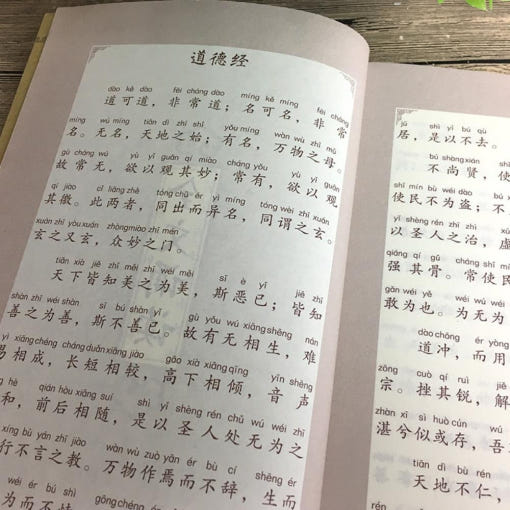 道德经
dào kě dào fēi cháng dào míng kě míng fēi cháng
道可道，非常道；名可名，非常
míng wú míng tiān dì zhī shǐ yǒu míng wàn wù zhī mǔ
名。无名，天地之始；有名，万物之母。
gù cháng wú yù yǐ guān qí miào cháng yǒu yù yǐ guān
故常无，欲以观其妙；常有，欲以观
qí jiào cǐ liǎng zhě tóng chū ér yì míng tóng wèi zhī xuán
其徼。此两者，同出而异名，同谓之玄。
xuán zhī yòu xuán zhòng miào zhī mén
玄之又玄，众妙之门。
tiān xià jiē zhī měi zhī wéi měi sī è yǐ jiē zhī
天下皆知美之为美，斯恶已；皆知
shàn zhī wéi shàn sī bú shàn yǐ gù yǒu wú xiāng shēng nán
善之为善，斯不善已。故有无相生，难
yì xiāng chéng cháng duǎn xiāng jiào gāo xià xiāng qīng yīn shēng
易相成，长短相较，高下相倾，音声
hè qián hòu xiāng suí shì yǐ shèng rén chǔ wú wéi zhī
和，前后相随，是以圣人处无为之
xíng bù yán zhī jiào wàn wù zuò yān ér bù cí shēng ér
行不言之教。万物作焉而不辞，生而
wéi ér bú shì gōng chéng ér
为而不恃
jū shì yǐ bú qù
居，是以不去。
bú shàng xián shǐ
不尚贤，使
shǐ mín bù wéi dào
使民不为盗；不
yǐ shèng rén zhī zhì xū
以圣人之治，虚
qiáng qí gǔ cháng shǐ mín
强其骨。常使民
gǎn wéi yě wéi wú wéi
敢为也。为无为
dào chōng ér yòng
道冲，而用
zōng cuò qí ruì jiě
宗。挫其锐，解
zhàn xī sì huò cún wú
湛兮似或存，吾
tiān dì bù rén
天地不仁，
rén